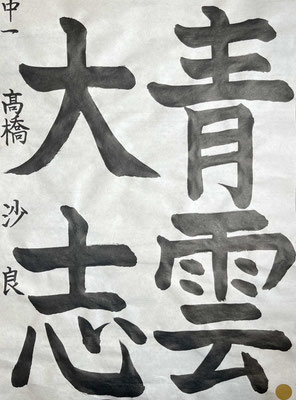 青雲
大志
中一 髙橋 沙良